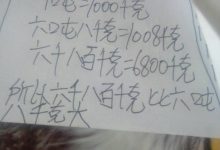 口屯=1000千克
六口屯八千克=1008千克
六千八百千克=6800千克
所比六千八百千克比六口屯
八千克